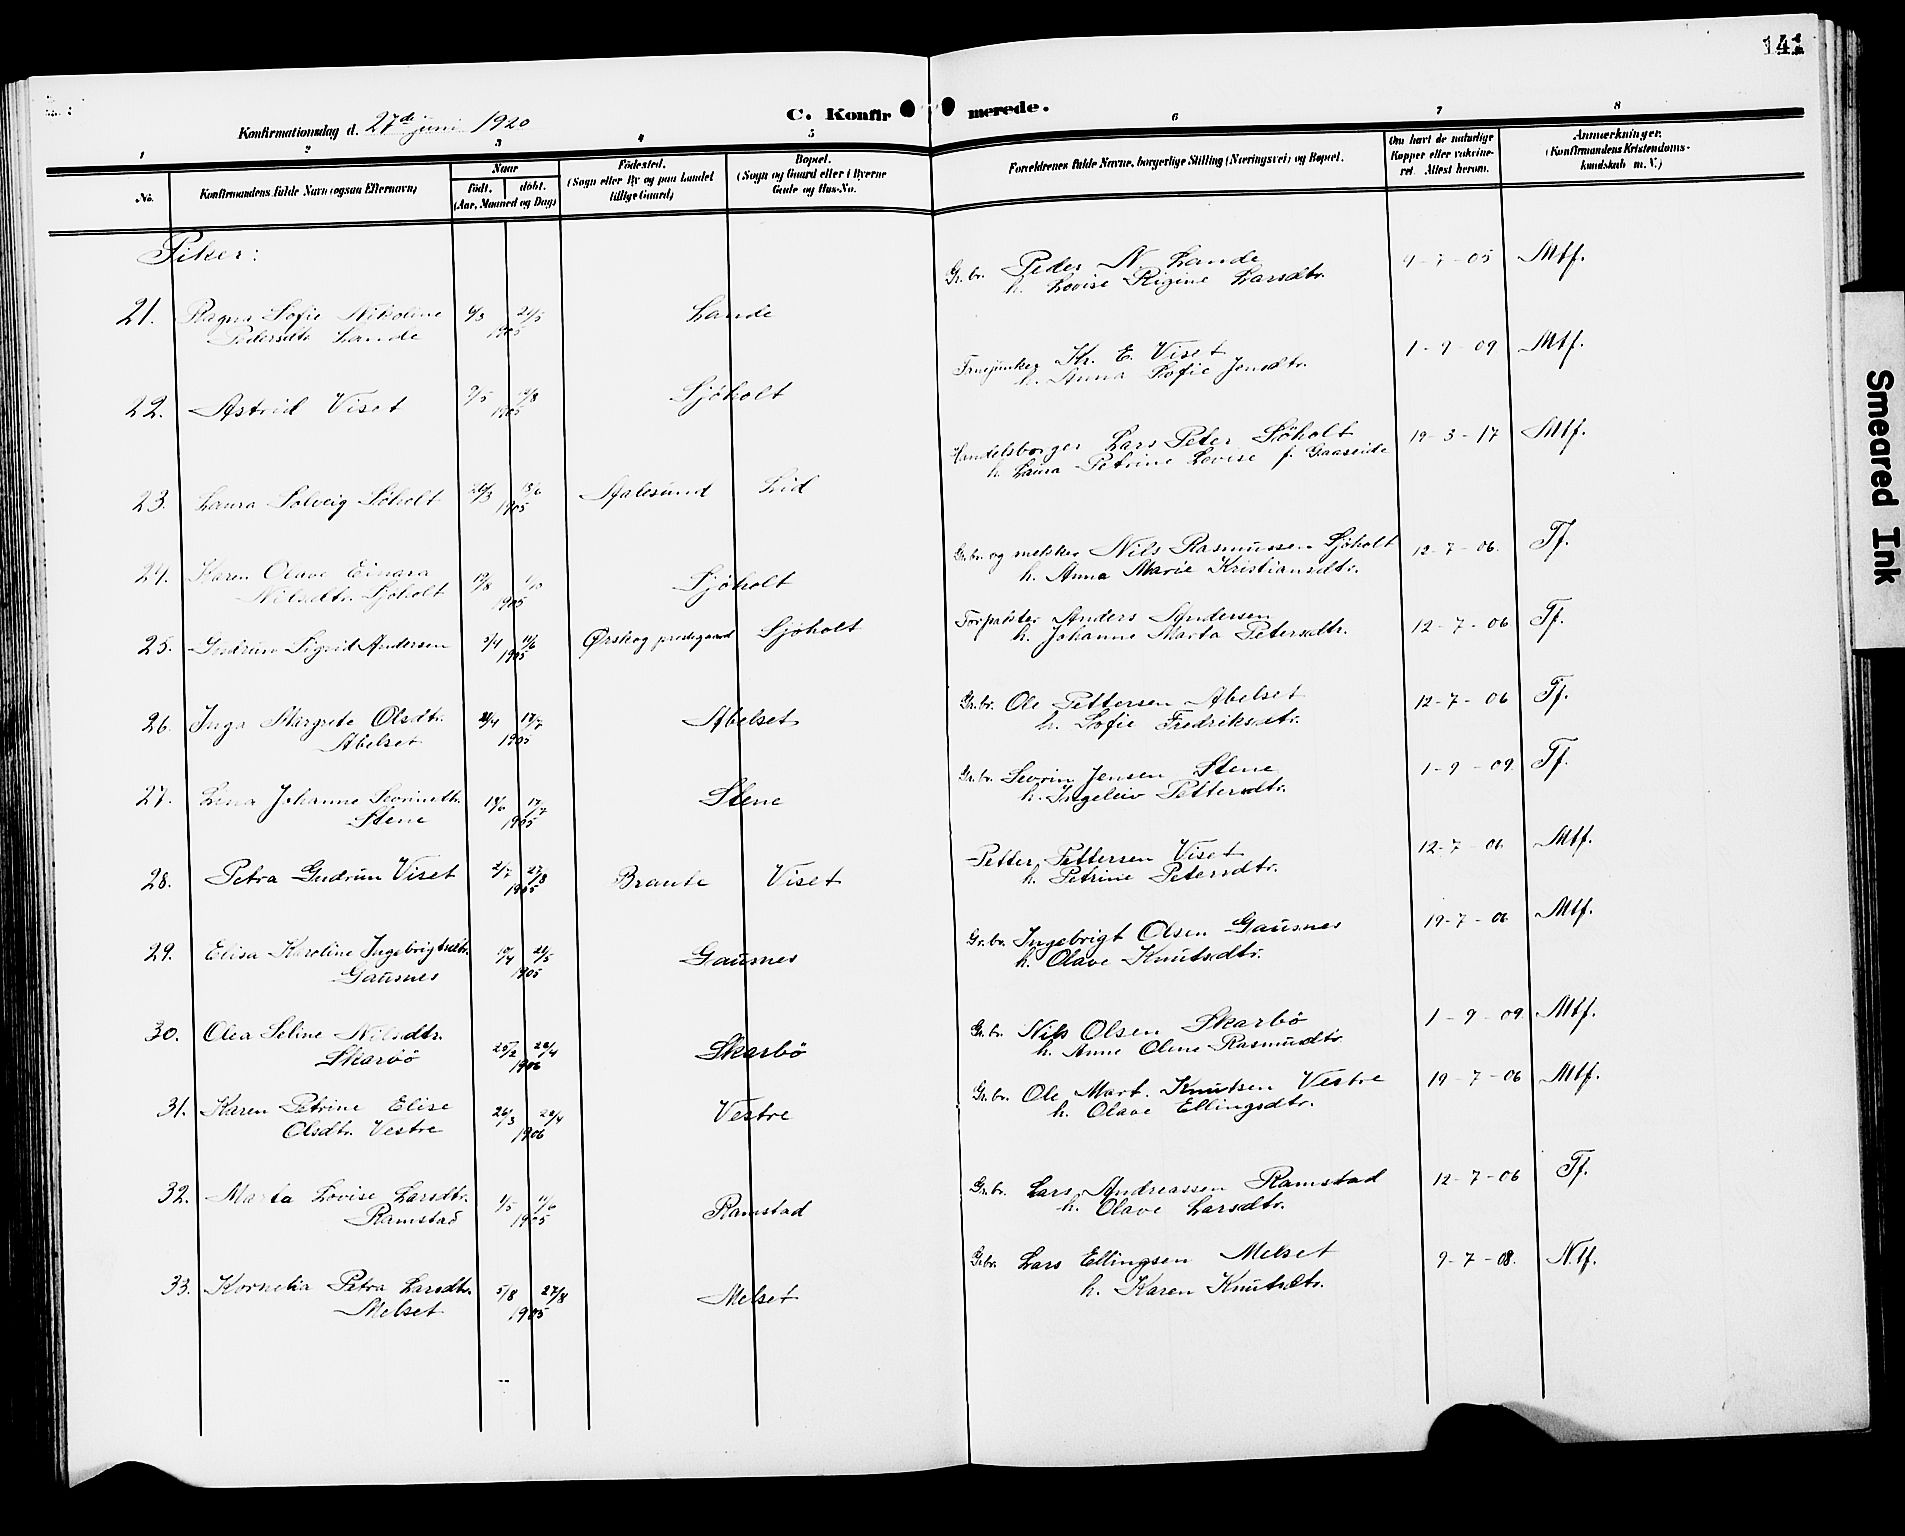 141
C. Konfirmerede.
Konfirmationsdag d. 27de juni 1920
1 2 3 4 5 6 7 8
No.
Konfirmandens fulde Navn (ogsaa Efternavn)
Naar
født. døbt.
(Aar, Maaned og Dag)
Fødested.
(Sogn eller By og paa Landet
tillige Gaard)
Bopæl.
(Sogn og Gaard eller i Byerne
Gade og Hus-No.
Forældrenes fulde Navne, borgerlige Stilling (Næringsvei) og Bopæl.
Om havt de naturlige
Kopper eller vakcine-
ret. Attest herom.
Anmærkninger.
(Konfirmandens Kristendoms-
kundskab m. V.)
Piker:
21. Ragna Sofie Nikoline 21/5 Lande Gr.br. Peder N. Lande 9-7-05 Mtf.
Pedersdtr Lande 1905 h. Lovise Regine Larsdtr.
22. Astrid Viset 1905 Sjöholt Kr. E. Viset 1-9-09 Mtf.
h. Anna Sofie Jensdtr.
23. Laura Solveig Söholt 1905 Aalesund Lid Handelsborger Lars Peter Söholt 19-3-17 Mtf.
h. Laura Petrine Lovise f. Gaaseide
24. Karen Olave Einara 19/8 Sjöholt Gr.br. og mekler Nils Rasmussen Sjöholt 12-7-06. Tf.
Nilsdtr. Sjöholt 1905 h. Anna Marie Kristiansdtr.
25. Gudrun Sigrid Andersen 11/6 Ørskog prestegaard Sjöholt Forpakter Anders Andersen 12-7-06 Tf.
1905 h. Johanne Marta Petersdtr.
26. Inga Margrete Olsdtr. Abelset Gr.br. Ole Pettersen Abelset 12-7-06 Tf.
Abelset 1905 h. Sofie Fredriksdtr.
27. Lina Johanne Sevrinsdtr. 17/7 Stene Gr.br. Sevrin Jensen Stene 1-9-09 Tf.
Stene 1905 h. Ingeleiv Pettersdtr.
28. Petra Gudrun Viset 2/7 27/8 Braute Viset Petter Pettersen Viset 12-7-06 Mtf.
1905 h. Petrine Petersdtr.
29. Elisa Karoline Ingebrigtsdtr. 21/5 Gausnes Gr.br. Ingebrigt Olsen Gausnes 19-7-06 Mtf.
Gausnes 1905 h. Olave Knutsdtr.
30. Olea Seline Nilsdtr. Gr.br. Nils Olsen Skarbö 1-9-09 Mtf.
Skarbö 25/2 1906 Skarbö h. Anne Oline Rasmusdtr
31. Karen Petrine Elise 26/3 Vestre Gr.br. Ole Mart. Knutsen Vestre 19-7-06 Mtf.
Olsdtr. Vestre 1906 h. Olave Ellingsdtr.
32. Marta Lovise Larsdtr. 1/5 11/6 Ramstad Gr.br. Lars Andreassen Ramstad 12-7-06 Tf.
Ramstad 1905 h. Olave Larsdtr.
33. Kornelia Petra Larsdtr. 5/8 27/8 Melset Gr.br. Lars Ellingsen Melset 9-7-08. Ntf.
Melset 1905 h. Karen Knutsdtr.
Smeared Ink